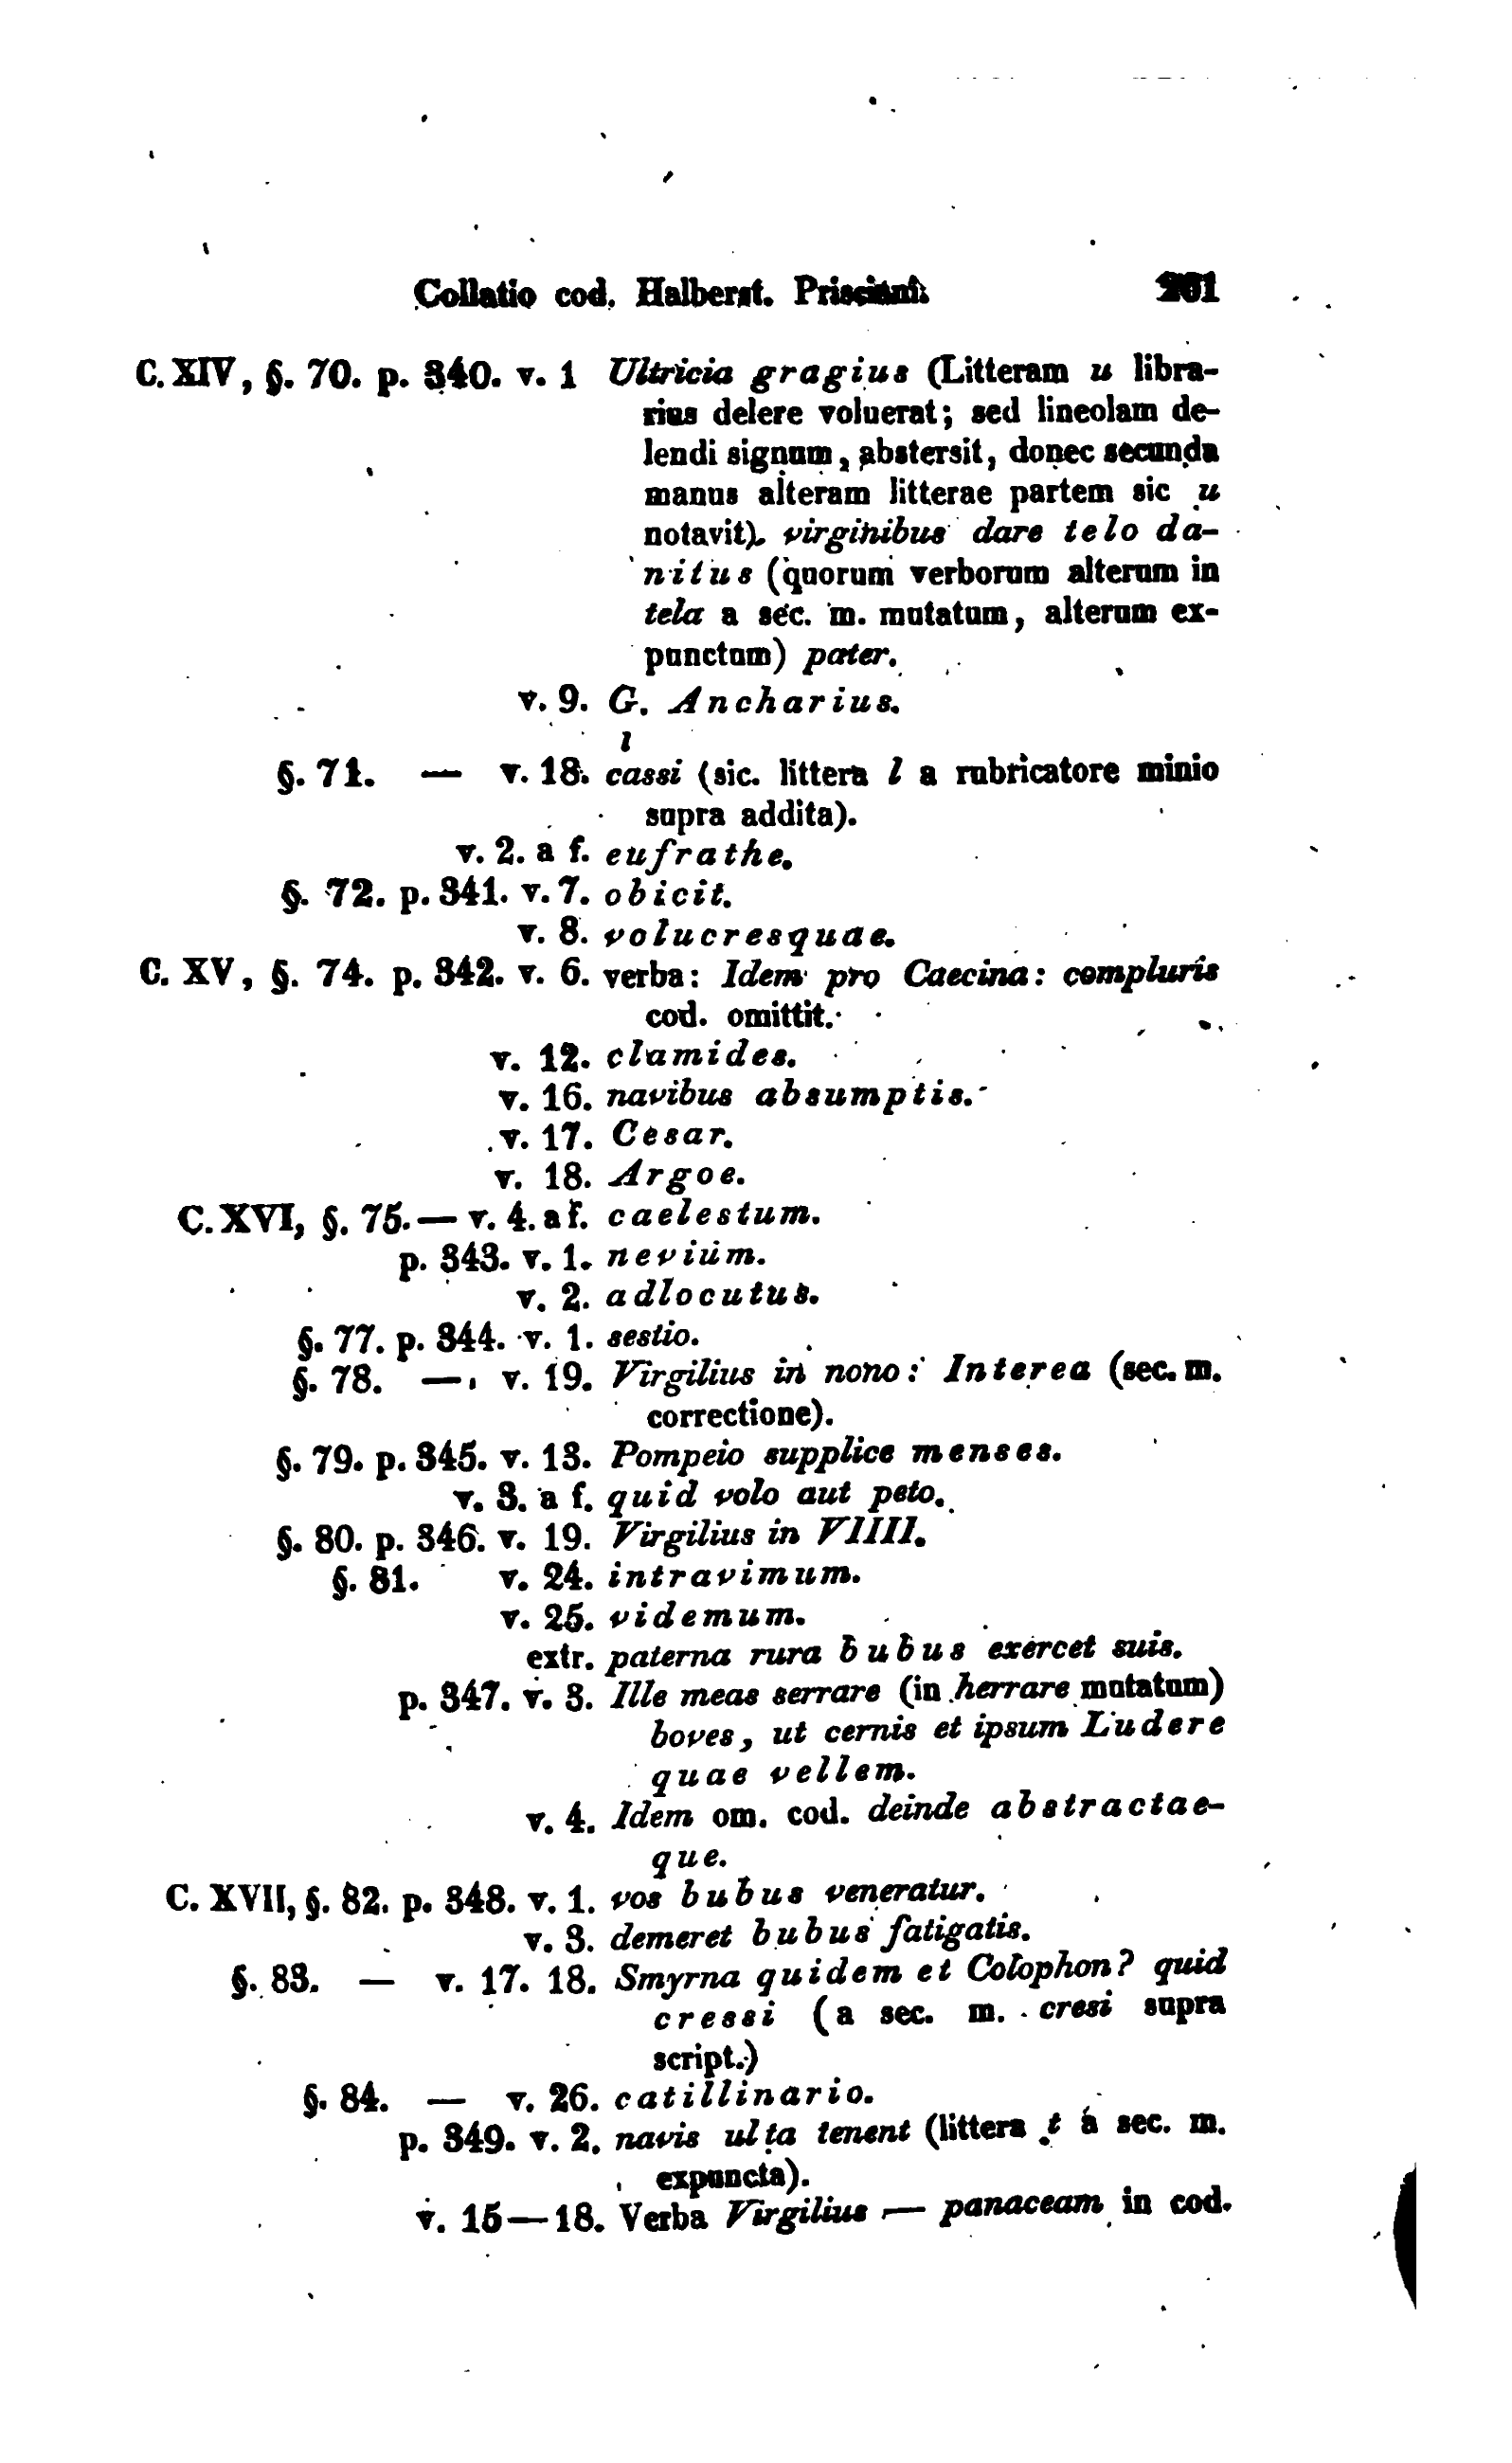 Collatio cod. Halberst. Prisciani. 201
C. XIV, §. 70. p. 340. v. 1 Ultricia gragius (Litteram u libra-
rius delere voluerat; sed lineolam de-
lendi signum, abstersit, donec secunda
manus alteram litterae partem sic ụ
notavit). virginibus dare telo da-
nitus (quorum verborum alterum in
tela a sec. m. mutatum, alterum ex-
punctum) pater.
v. 9. G. Ancharius.
l
§. 71. — v. 18. cassi (sic. littera l a rubricatore minio
supra addita).
v. 2. a f. eufrathe.
§. 72. p. 341. v. 7. obicit.
v. 8. volucresquae.
C. XV, §. 74. p. 342. v. 6. verba: Idem pro Caecina: compluris
cod. omittit.
v. 12. clamides.
v. 16. navibus absumptis.
v. 17. Cesar.
v. 18. Argoe.
C. XVI, §. 75. — v. 4. a f. caelestum.
p. 343. v. 1. nevium.
v. 2. adlocutus.
§. 77. p. 344. v. 1. sestio.
§. 78. — v. 19. Virgilius in nono: Interea (sec. m.
correctione).
§. 79. p. 345. v. 13. Pompeio supplice menses.
v. 3. a f. quid volo aut peto.
§. 80. p. 346. v. 19. Virgilius in VIIII.
§. 81. v. 24. intravimum.
v. 25. videmum.
extr. paterna rura bubus exercet suis.
p. 347. v. 3. Ille meas serrare (in herrare mutatum)
boves, ut cernis et ipsum Ludere
quae vellem.
v. 4. Idem om. cod. deinde abstractae-
que.
C. XVII, §. 82. p. 348. v. 1. vos bubus veneratur.
v. 3. demeret bubus fatigatis.
§. 83. — v. 17. 18. Smyrna quidem et Colophon? quid
cressi (a sec. m. cresi supra
script.)
§. 84. — v. 26. catillinario.
p. 349. v. 2. navis ulṭa tenent (littera ṭ a sec. m.
expuncta).
v. 15—18. Verba Virgilius — panaceam in cod.